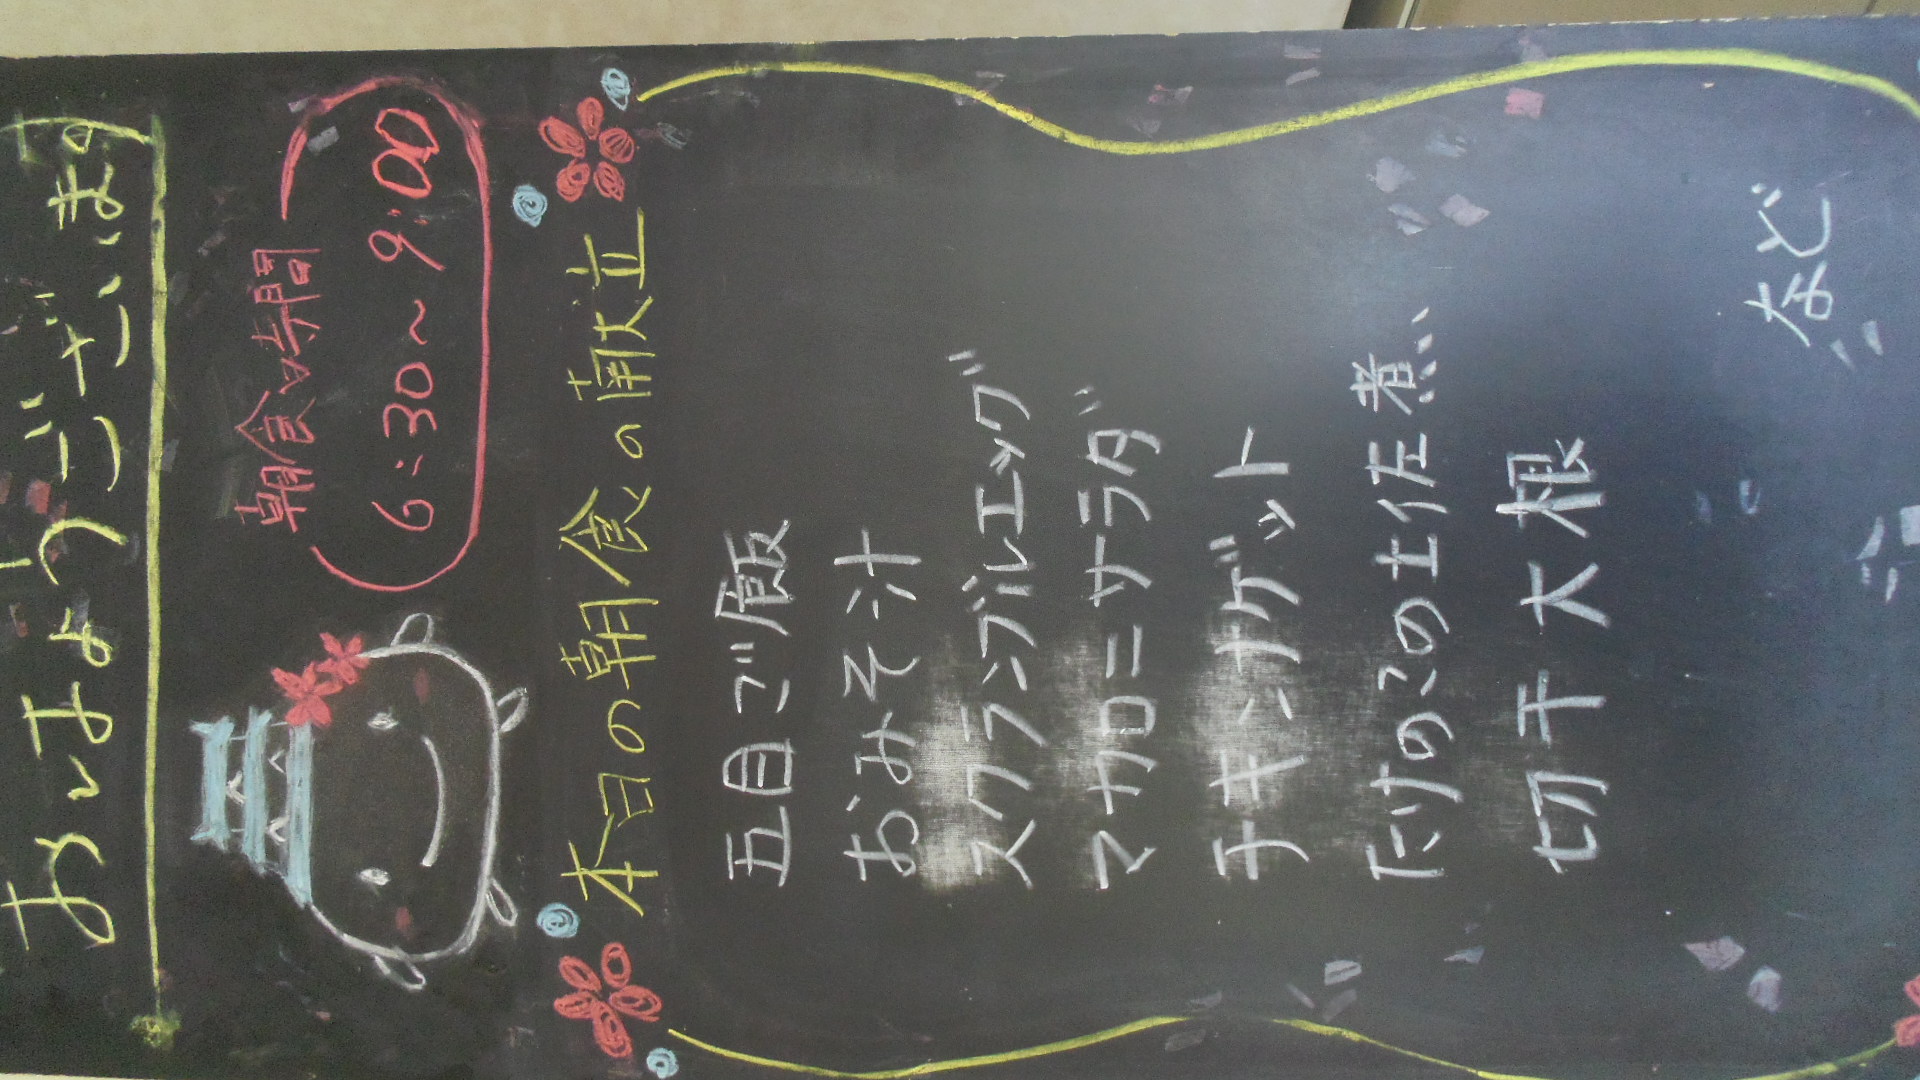 おはようございます
朝食時間
6:30～9:00
本日の朝食の献立
五目ご飯
おみそ汁
スクランブルエッグ
マカロニサラダ
チキンナゲット
たけのこの土佐煮
切干大根
など